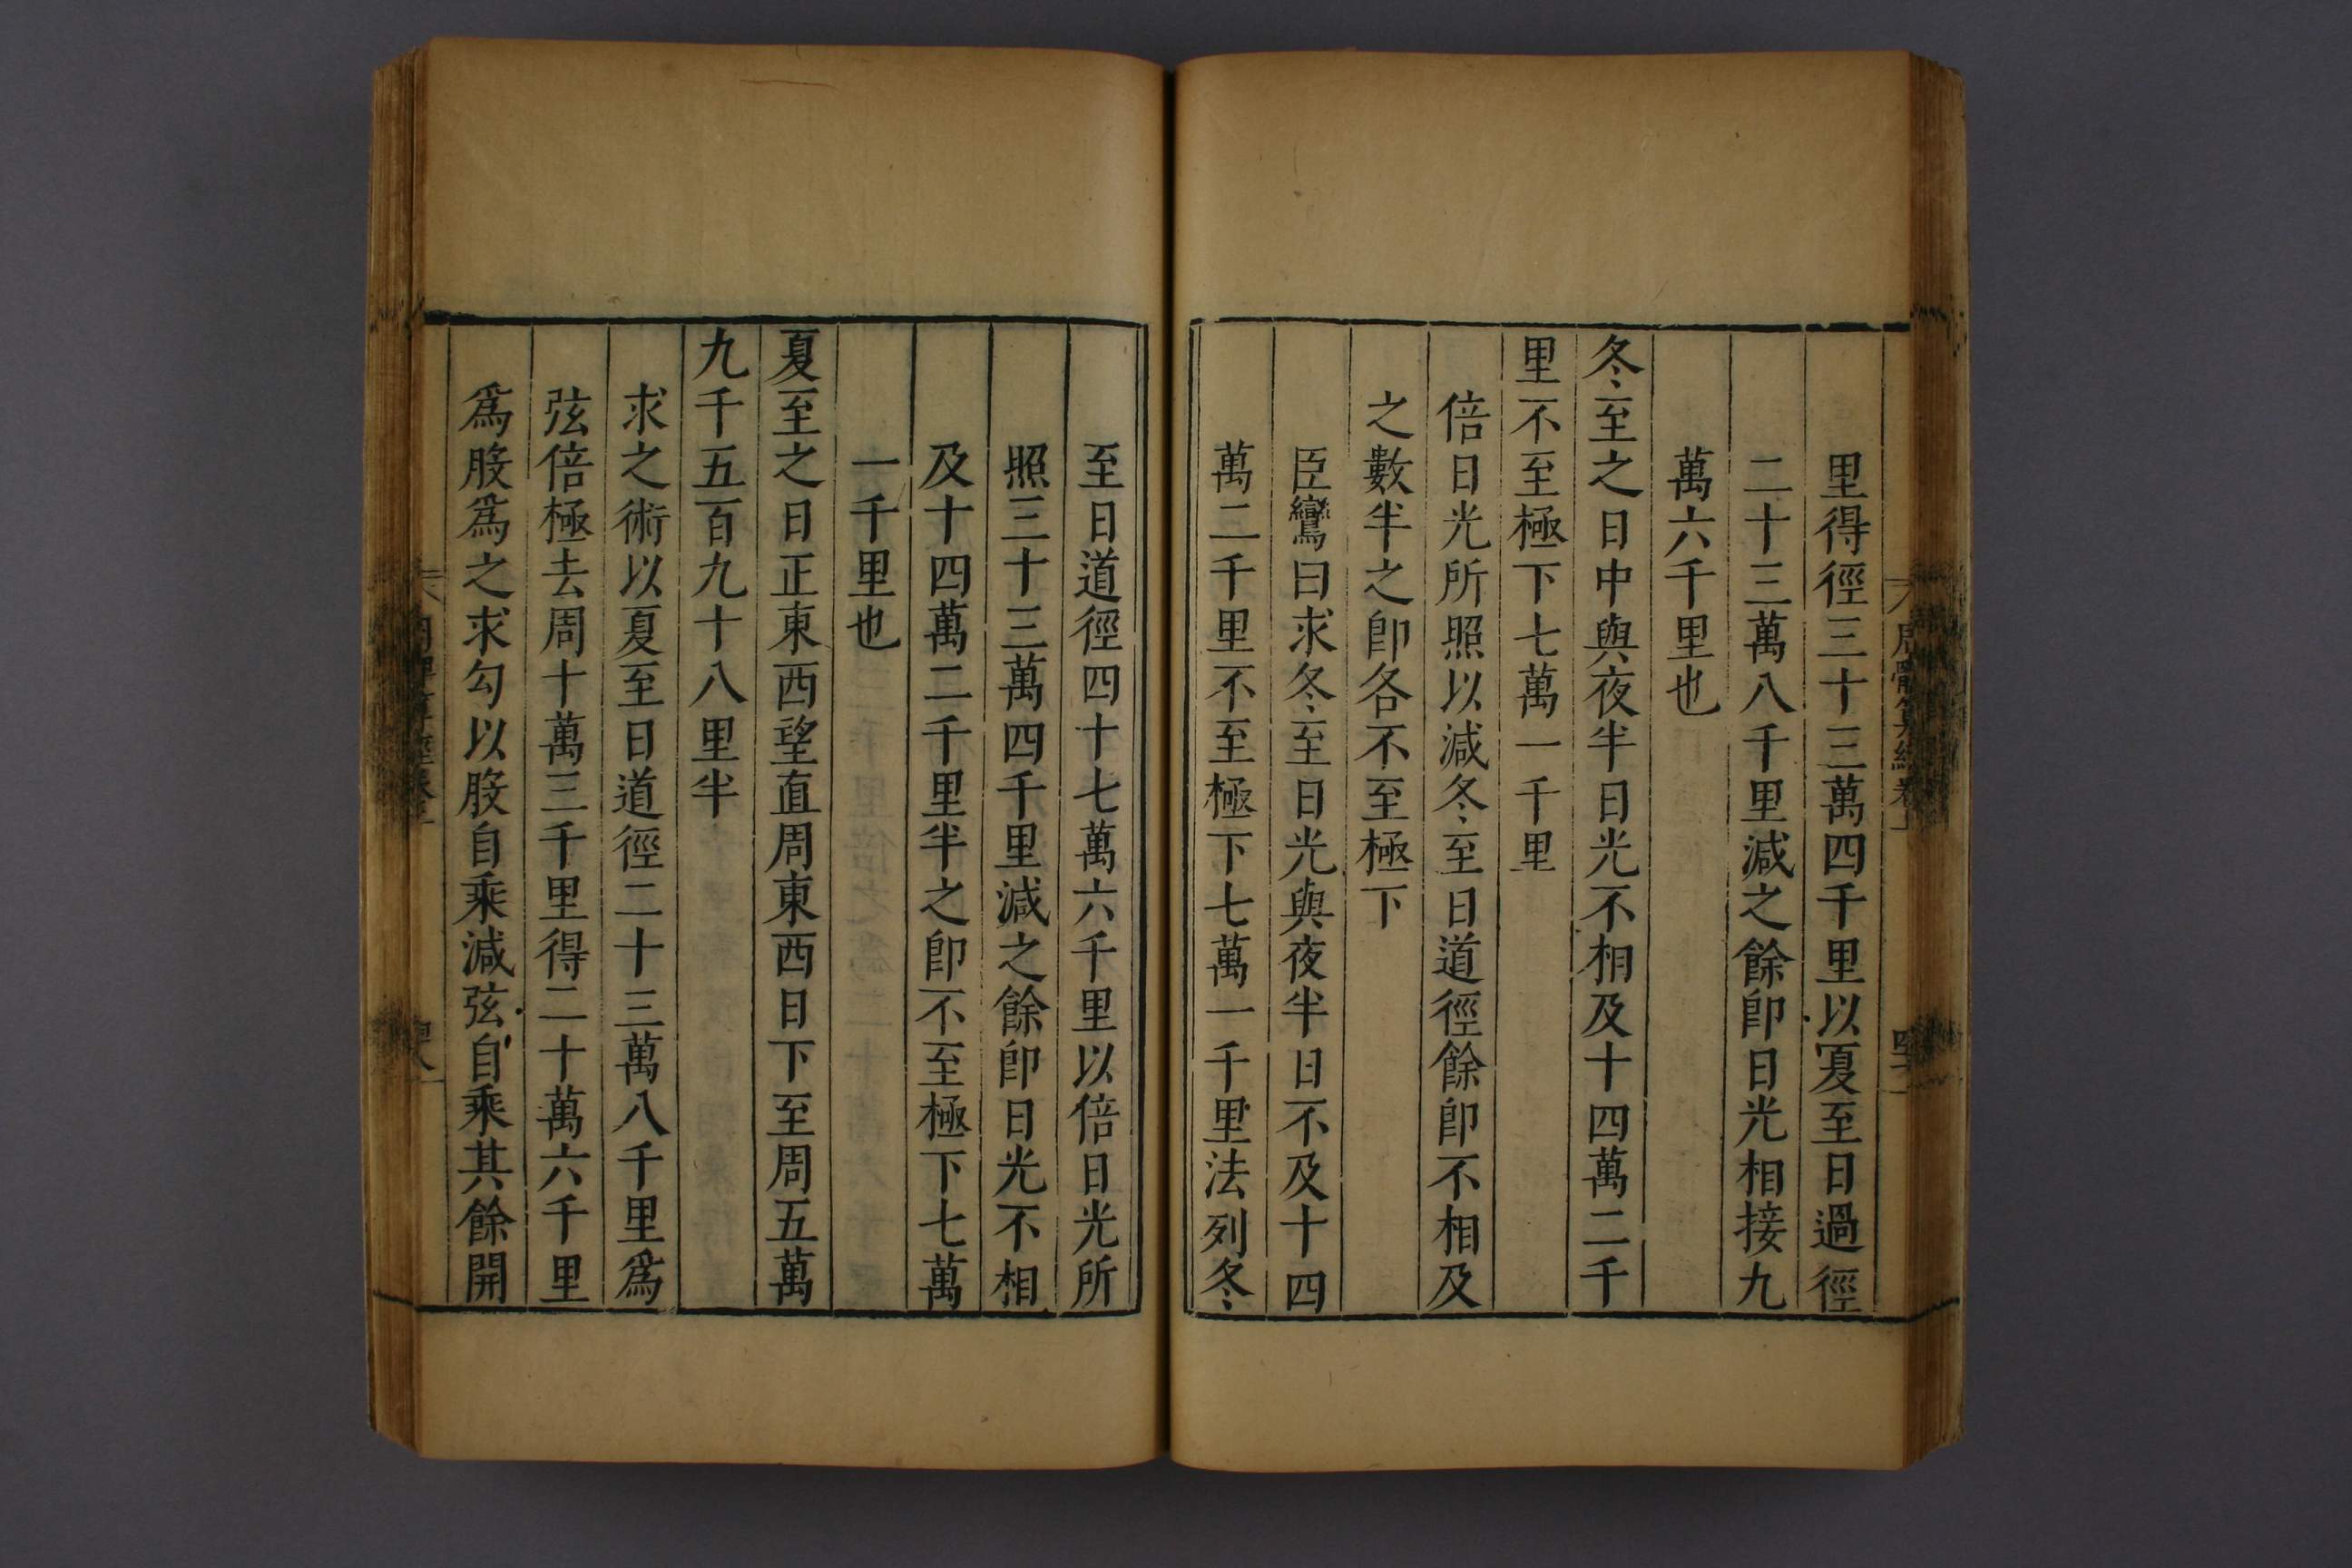 周髀算經卷上
里得徑三十三萬四千里以夏至日過徑
二十三萬八千里減之餘卽日光相接九
萬六千里也
冬至之日中與夜半日光不相及十四萬二千
里不至極下七萬一千里
倍日光所照以減冬至日道徑餘卽不相及
之數半之卽各不至極下
臣鸞曰求冬至日光與夜半日不及十四
萬二千里不至極下七萬一千里法列冬
至日道徑四十七萬六千里以倍日光所
照三十三萬四千里減之餘卽日光不相
及十四萬二千里半之卽不至極下七萬
一千里也
夏至之日正東西望直周東西日下至周五萬
九千五百九十八里半
求之術以夏至日道徑二十三萬八千里爲
弦倍極去周十萬三千里得二十萬六千里
爲股爲之求勾以股自乘減弦自乘其餘開